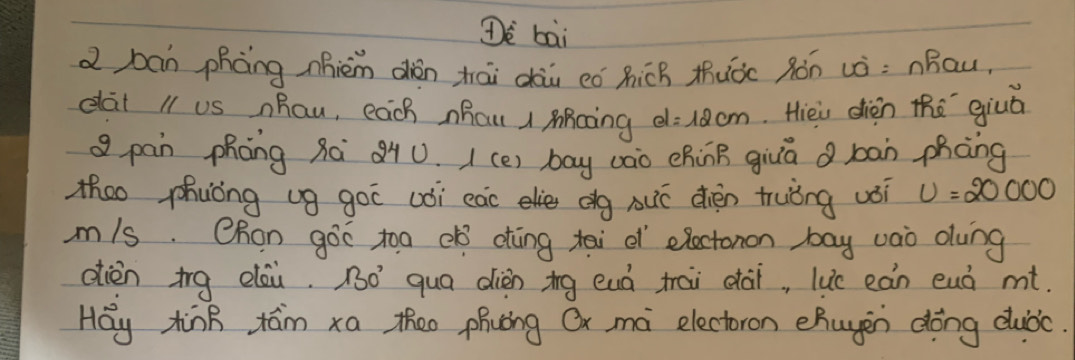 Đề bài
2 bản phẳng nhiễm điện trái dấu có kích thước lớn và = nhau,
đặt // vs nhau, cách nhau 1 khoảng d=12cm. Hiệu điện thế giữa
2 bản phẳng là 24 V. 1 (e) bay vào chính giữa 2 bản phẳng
theo phương vg góc với các đg sức điện trường với V=20000
m/s. Chọn gốc tọa độ đúng tại đ' electoron bay vào dùng
điện trg đều. Bỏ qua điện trg của trái đất, lực cản của mt.
Hãy tính tầm xa theo phương Ox mà electoron chuyển động được.